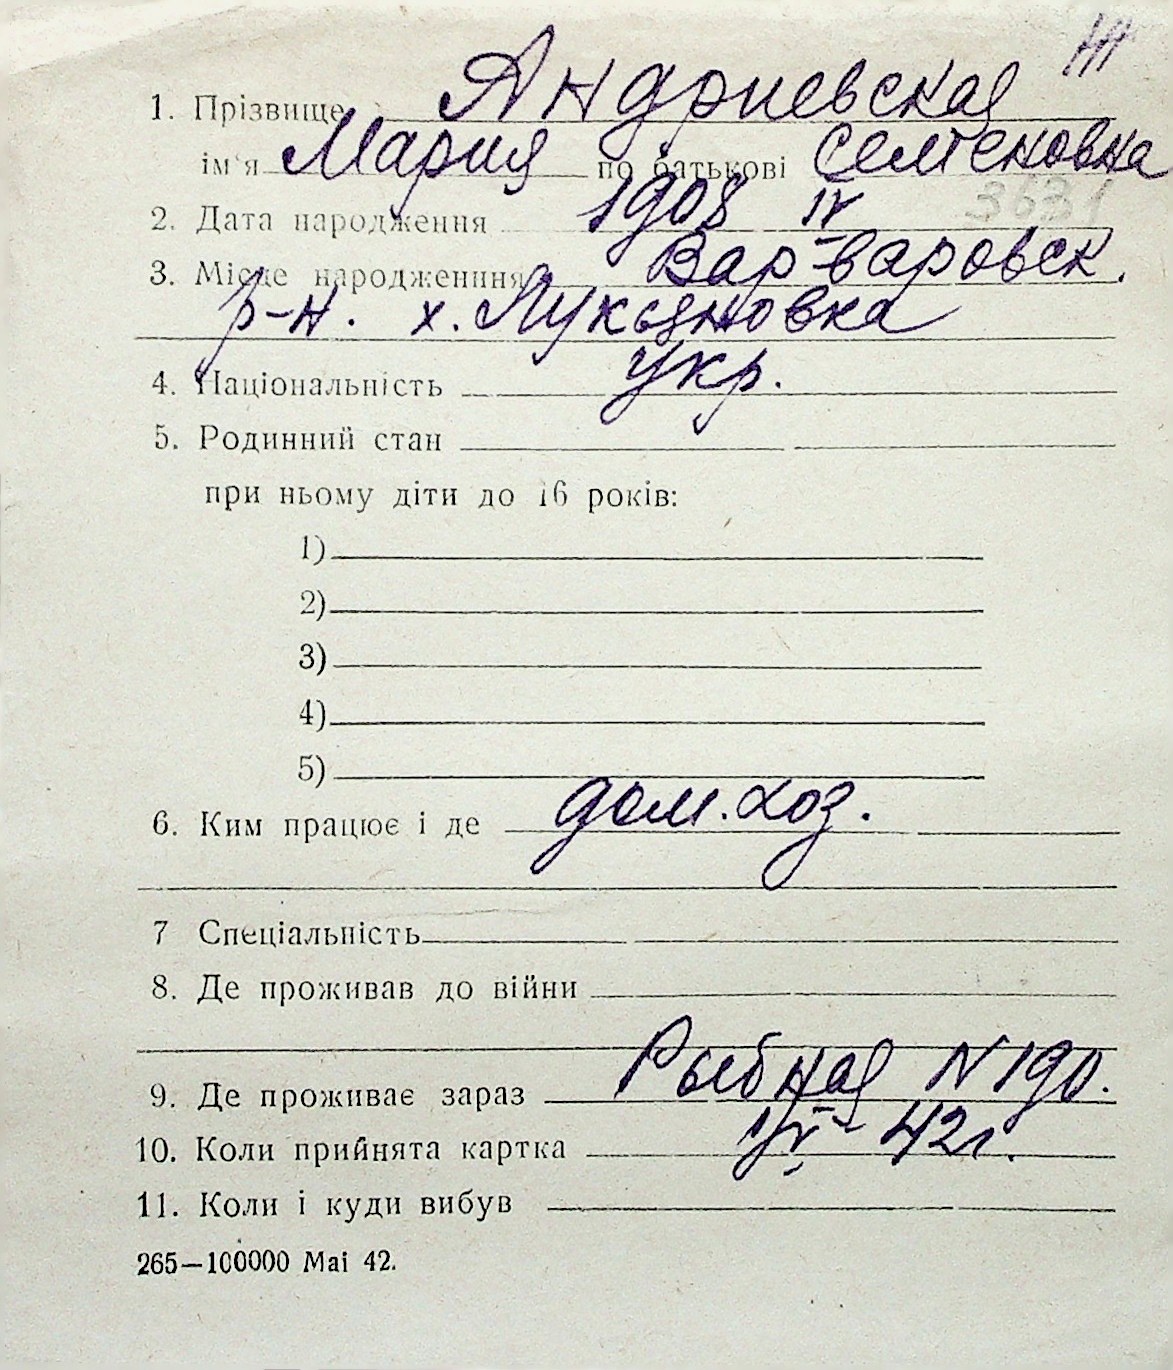 1. Прізвище Андриевская
ім'я Мария по батькові Семеновна
3631
2. Дата народження 1908 IV
3. Місце народженння Вар-варовск.
р-н. х. Лукьяновка
4. Національність укр.
5. Родинний стан
при ньому діти до 16 років:
1)
2)
3)
4)
5)
6. Ким працює і де дом. хоз.
7 Спеціальність
8. Де проживав до війни
9. Де проживає зараз Рыбная N 190.
10. Коли прийнята картка 42 г.
11. Коли і куди вибув
265—100000 Mai 42.